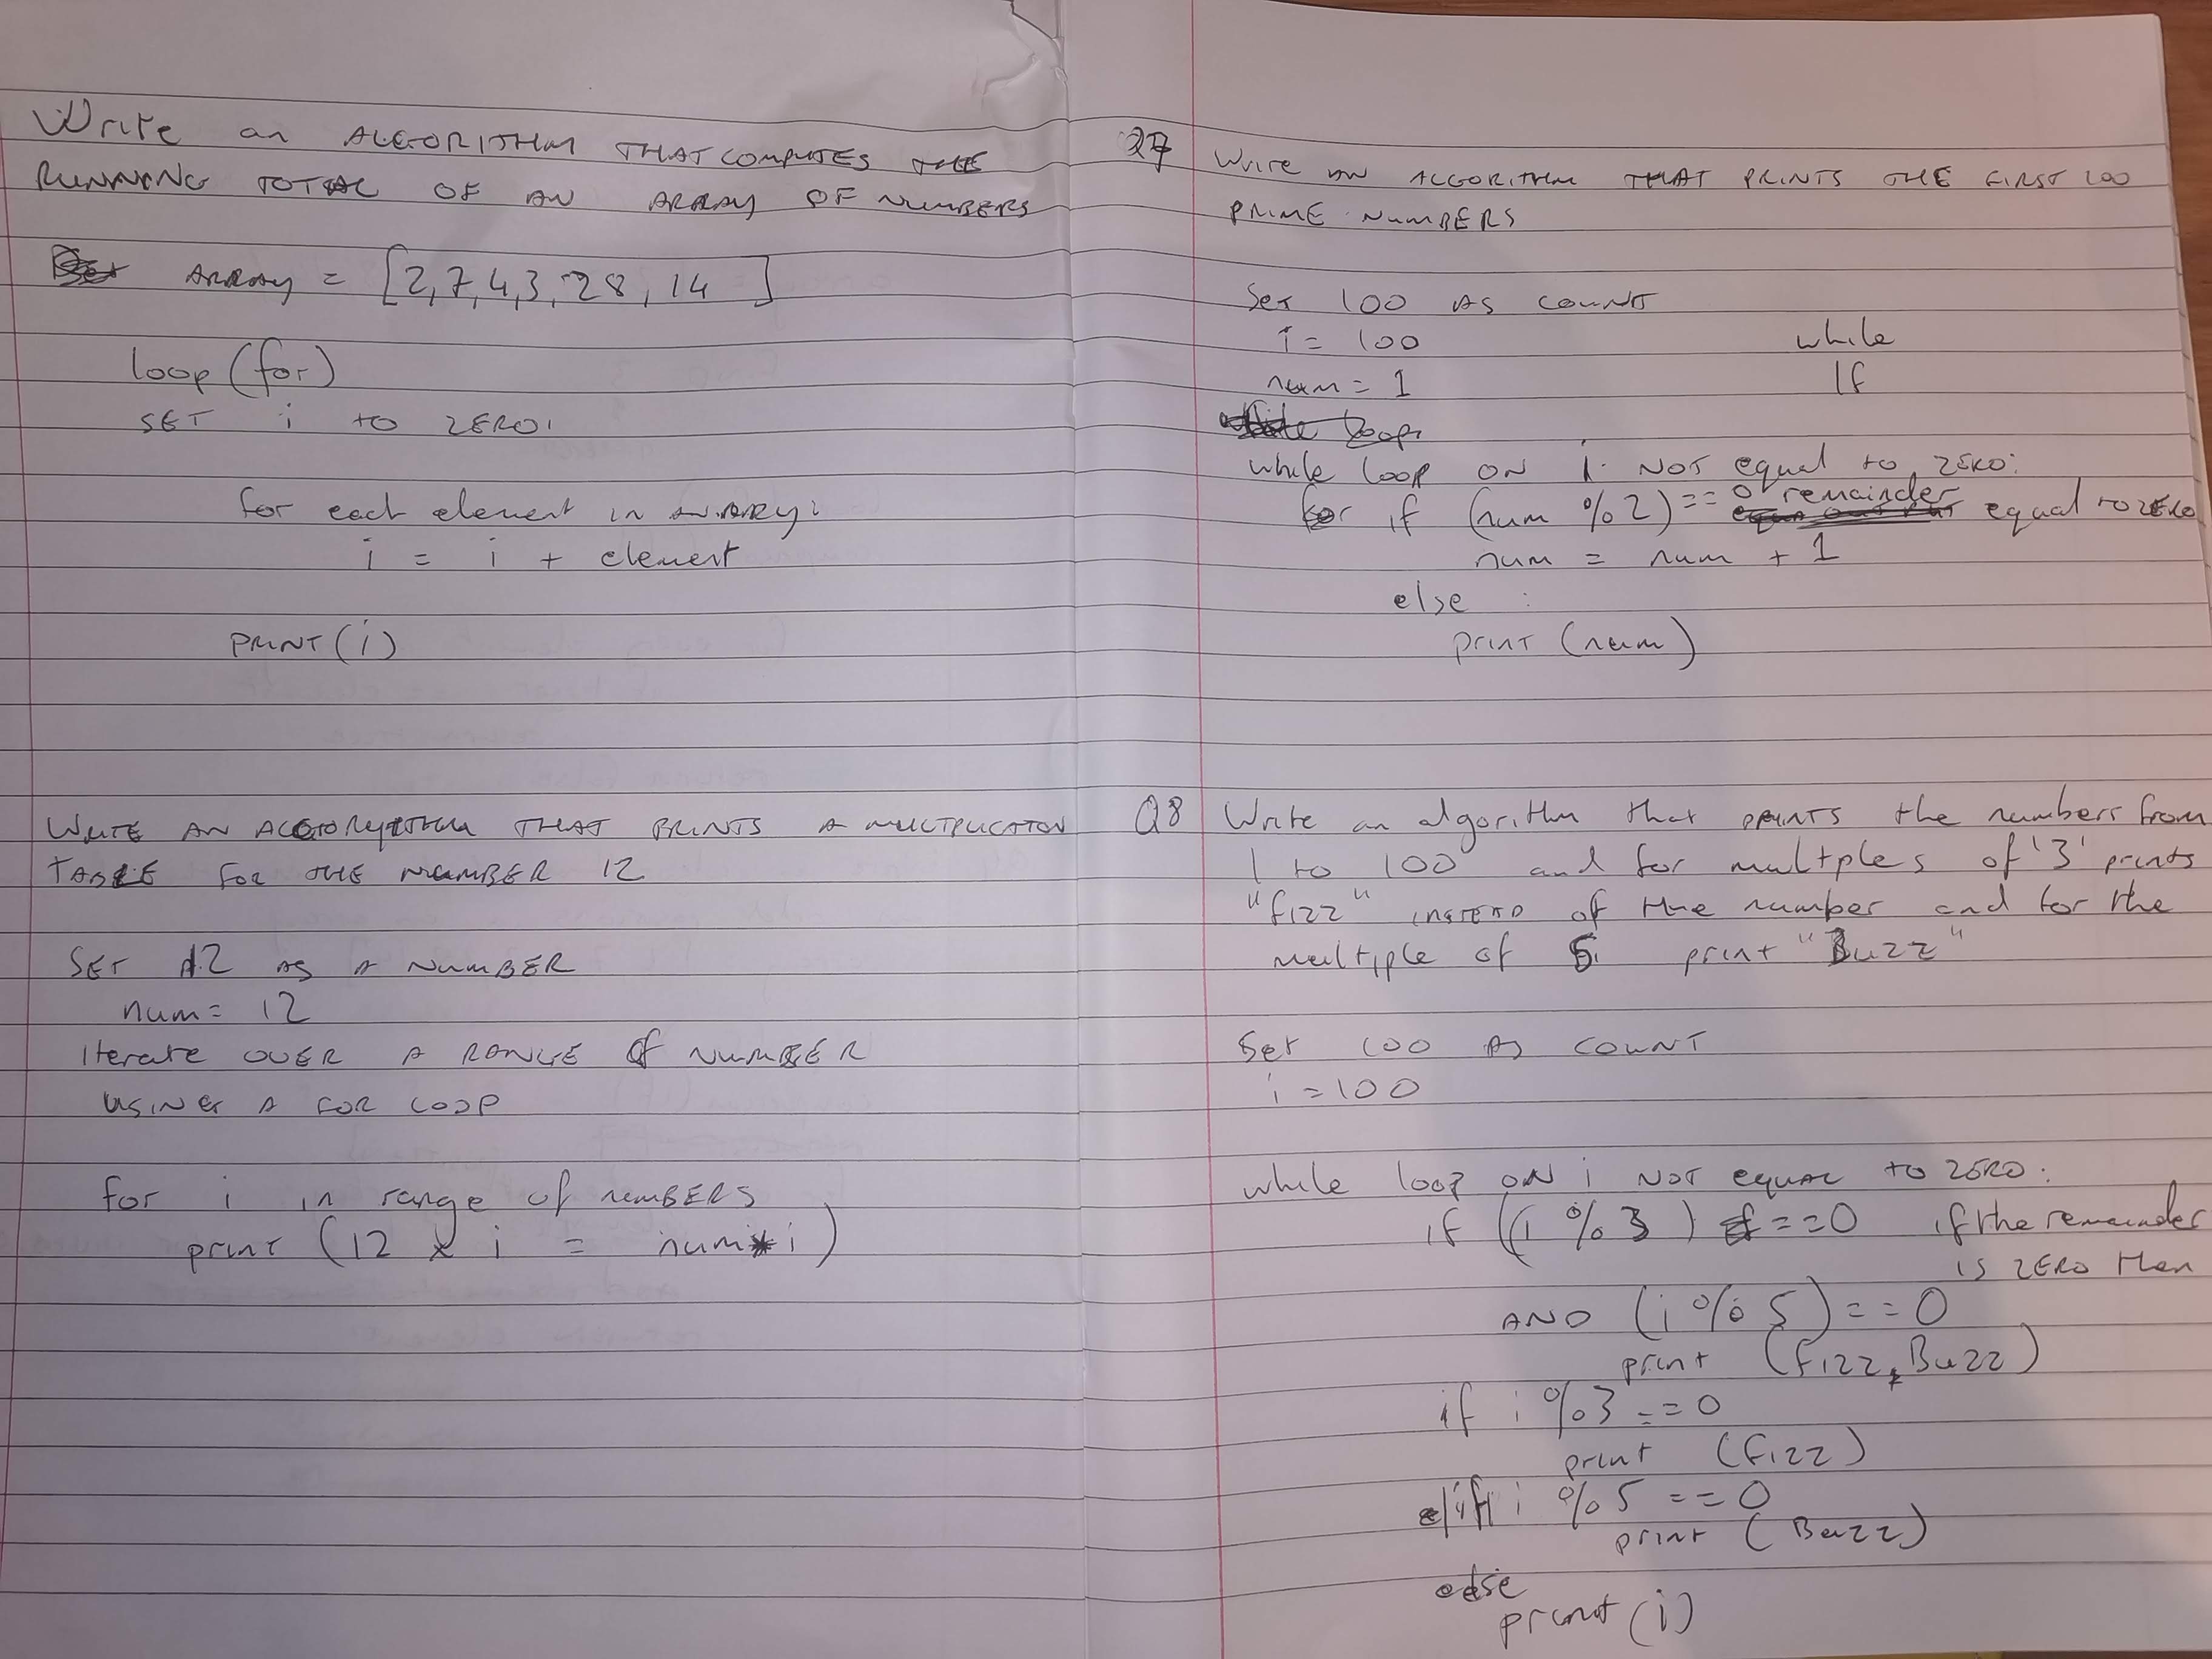 Write an ALGORITHM THAT COMPUTES THE
RUNNING TOTAL OF AN ARRAY OF NUMBERS
ARRAY = [2,7,4,3,28,14]
loop (for)
SET i to ZERO
for each element in ARRAY:
i = i + element
PRINT (i)
WRITE AN ALGORYTHM THAT PRINTS A MULTPLICATON
TABLE FOR THE NUMBER 12
SET 12 AS A NUMBER
num = 12
Iterate OVER A RANGE of NUMBER
USING A FOR LOOP
for i in range of numBERS
print (12 x i = num*i)
Q7 Write AN ALGORITHM THAT PRINTS THE FIRST 100
PRIME NUMBERS
Set 100 AS COUNT
i = 100 while
num = 1 If
while loop ON i NOT equal to ZERO:
if (num % 2) == 0 remainder equal to ZERO
num = num + 1
else :
print (num)
Q8 Write an algorithm that PRINTS the numbers from
1 to 100 and for multples of '3' prints
"fizz" INSTEAD of the number and for the
multiple of 5 print "Buzz"
Set 100 AS COUNT
i = 100
while loop ON i NOT equal to ZERO:
if (i % 3) == 0 if the remainder
is ZERO then
AND (i % 5) == 0
print (Fizz, Buzz)
if i % 3 == 0
print (Fizz)
elif i % 5 == 0
print (Buzz)
else
print (i)